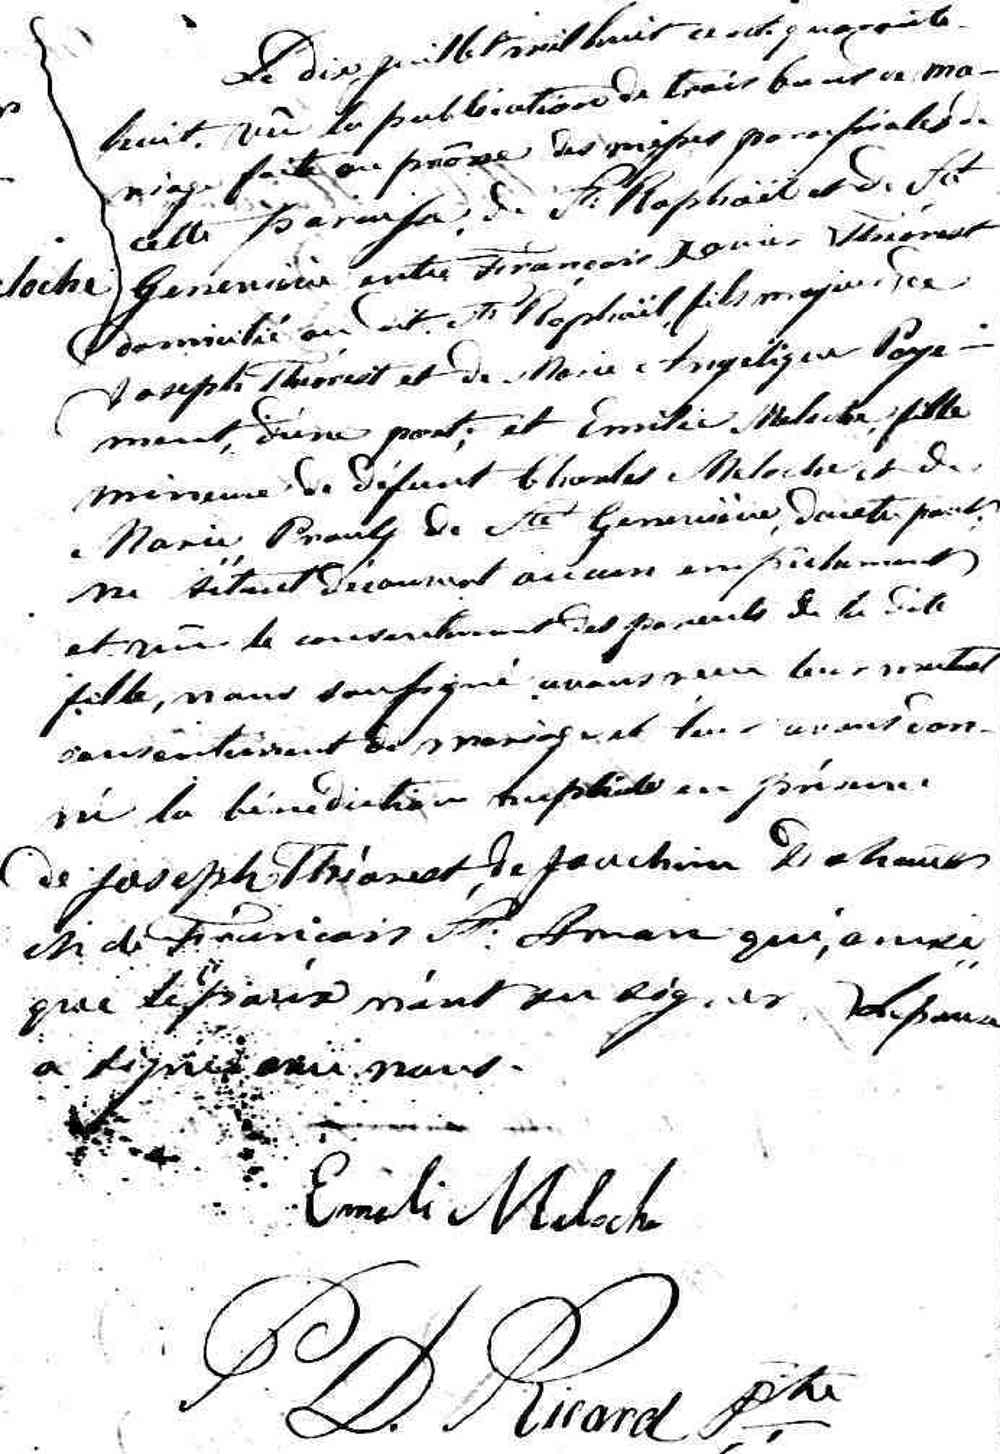 Le dix juillet mil huit cent quarante-
huit, vû la publication de trois bans de ma-
riage faite au prône des messes paroissiales de
cette paroisse, de St. Raphaël et de Ste
eloche Geneviève entre François Xavier Théorest
domicilié au dit St Raphaël, fils majeur de
Joseph Théorest et de Marie Angélique Paye-
ment, d'une part, et Emilie Meloche, fille
mineure de défunt Charles Meloche et de
Marie Proulx de Ste Geneviève, d'autre part,
ne s'étant découvert aucun empêchement
et vû le consentement des parents de la dite
fille, nous soussigné avons reçu leur mutuel
consentement de mariage et leur avons don-
né la bénédiction nuptiale en présence
de Joseph Théorest, de Joachim
et de François St. Aman qui, ainsi
que l'époux n'ont su signer. L'épouse
a signé avec nous.
Emeli Meloche
P D. Ricard ptre